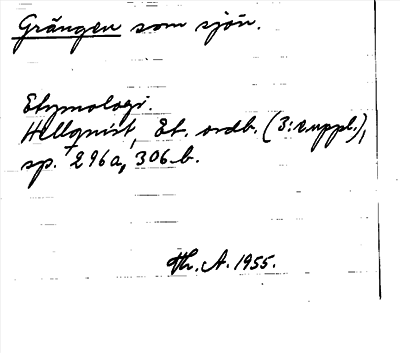 Grängen som sjön.
Etymologi.
Hellquist, Et. ordb. (3:e uppl.),
sp. 296a, 306b.
Th. A. 1955.